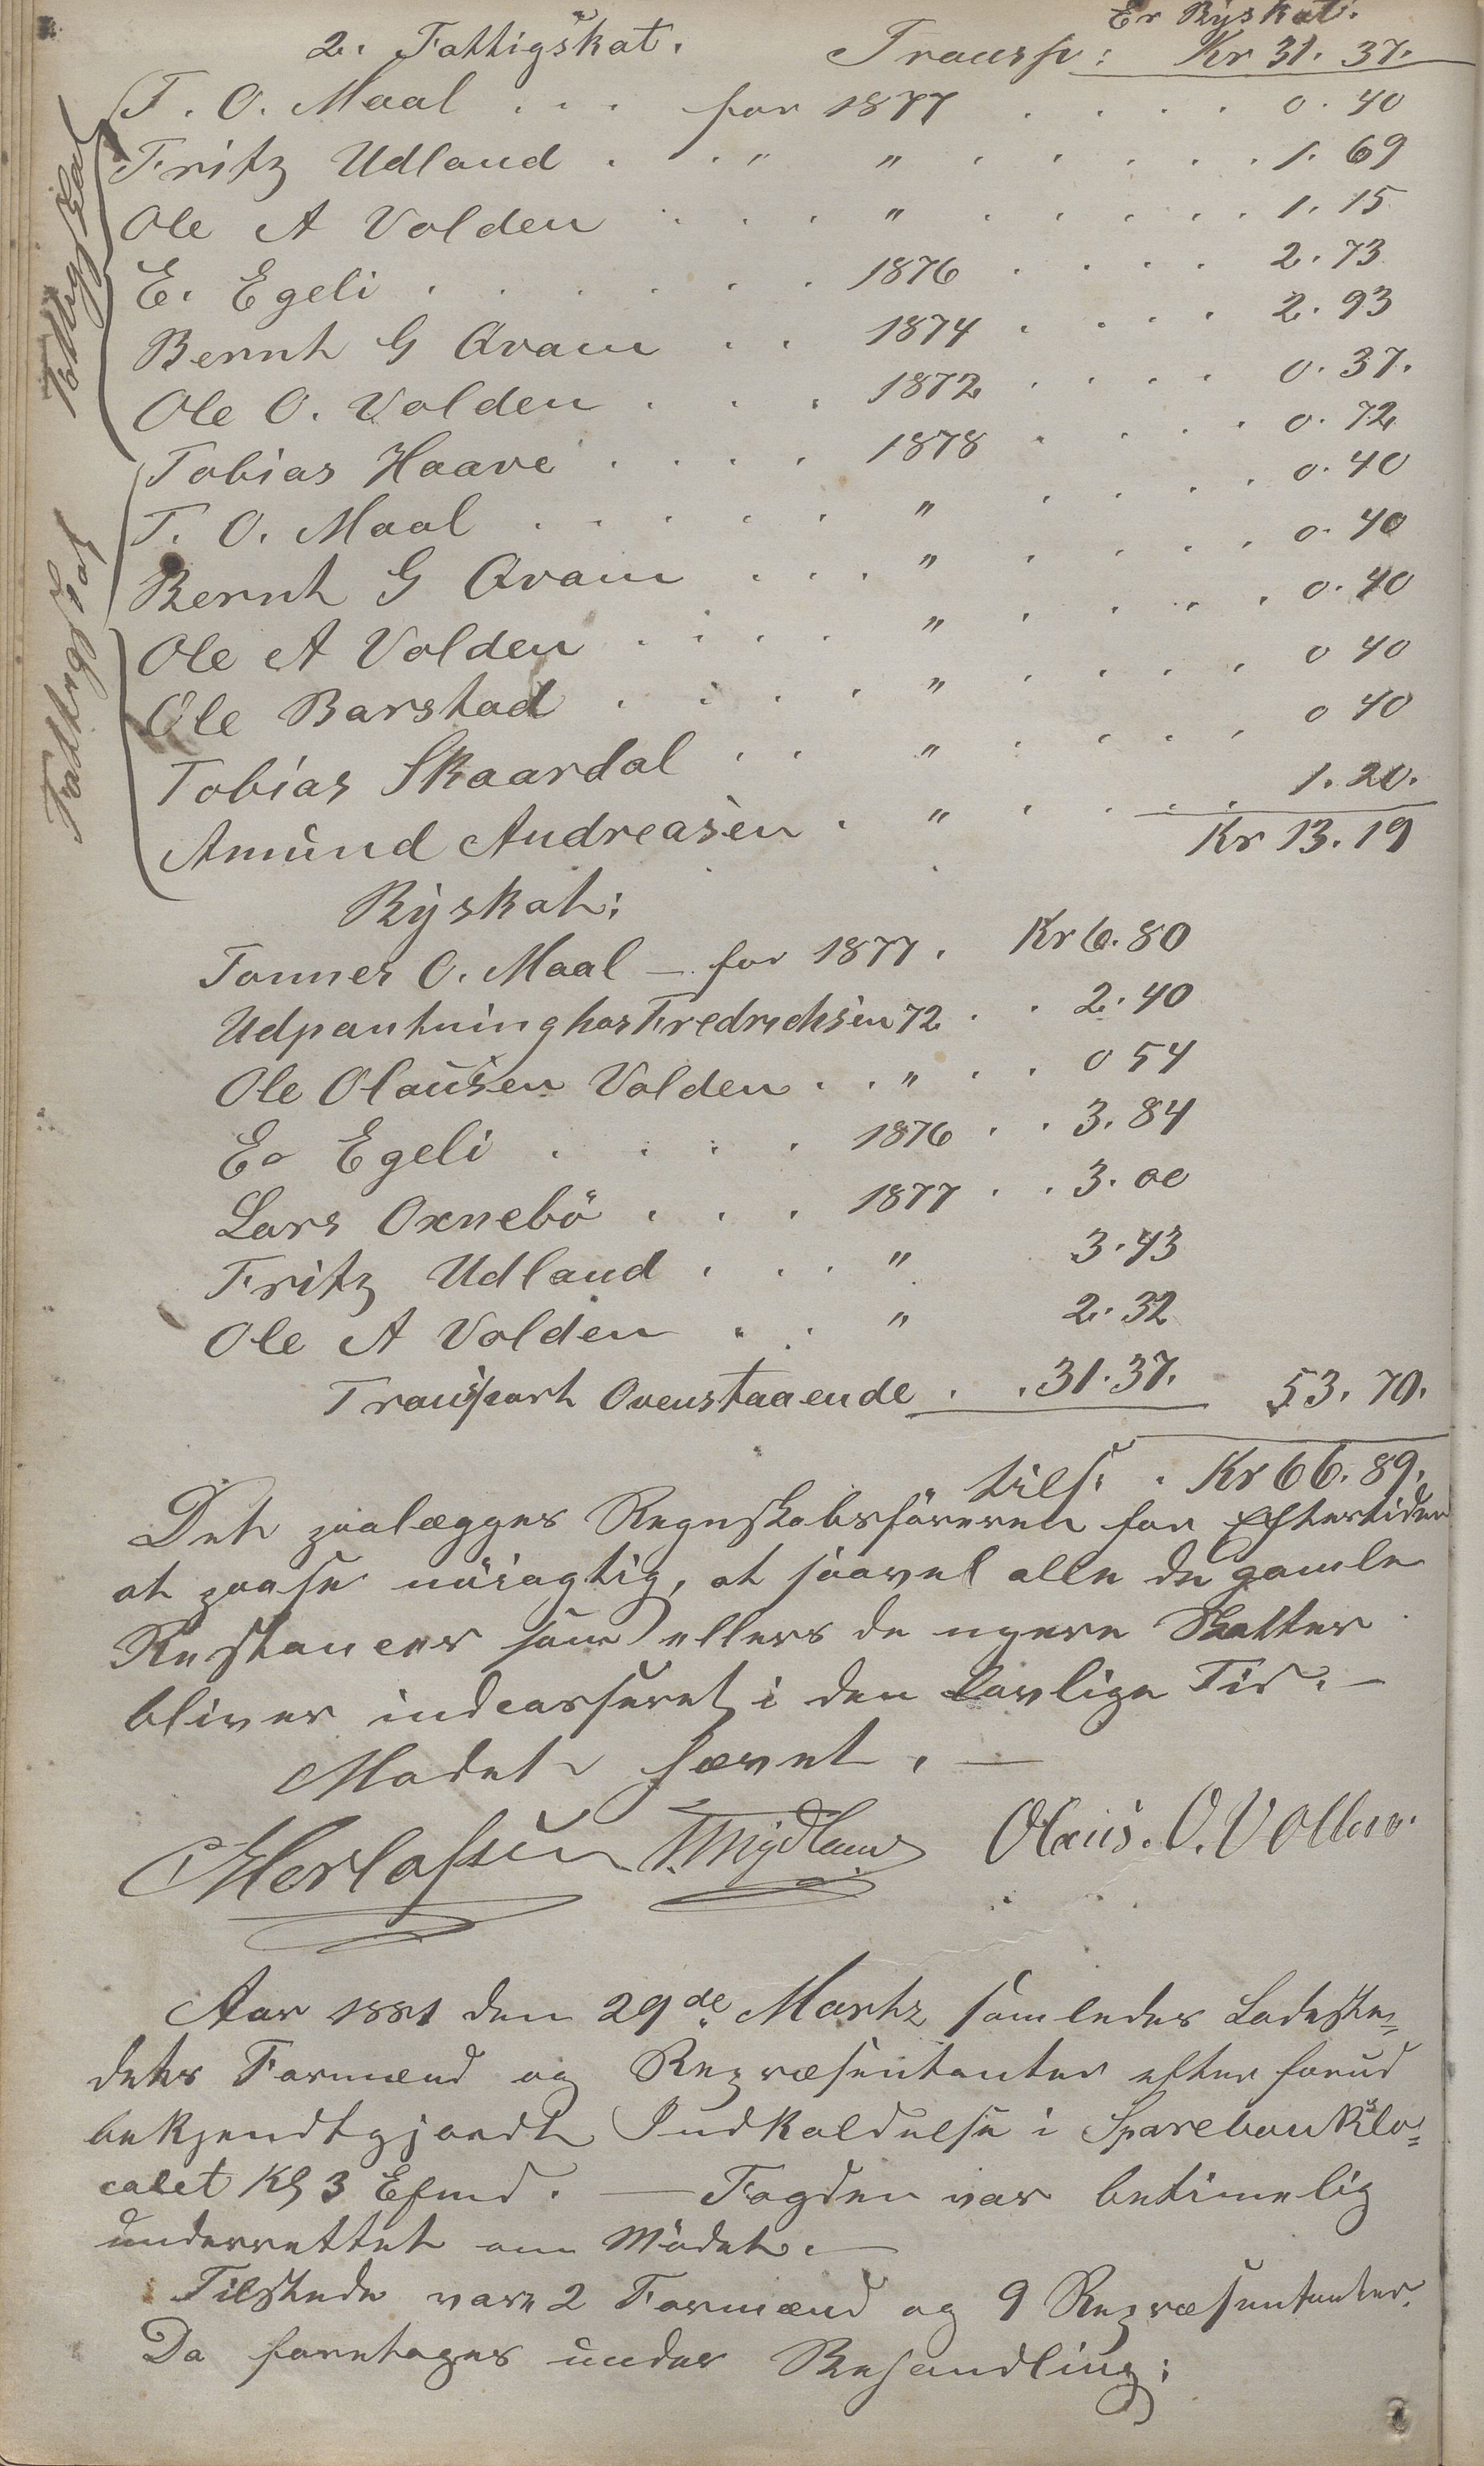 Er Byskat.
2. Fattigskat. Transp: Kr 31. 37.
T. O. Maal . . . for 1877 . . . . 0. 40
Fritz Udland . . " " . . . . . . 1. 69
Ole A Volden . . . " . . . . . . 1. 15
E. Egeli . . . . . . 1876 . . . . 2. 73
Bernt G Qvam . . 1874 . . . . 2. 93
Ole O. Volden . . . 1872 . . . . 0. 37.
Tobias Haave . . . . 1878 . . . . 0. 72
T. O. Maal . . . . . " . . . . 0. 40
Bernt G Qvam . . . " . . . . 0. 40
Ole A Volden . . . . " . . . . . 0. 40
Ole Barstad . . . . " . . . . 0 40
Tobias Skaardal . . " . . . . . 0 40
Amund Andreasen . " . . . . 1. 20.
Kr 13. 19
Fattigskat
Fattigskat
Byskat:
Tønnes O. Maal – for 1877 . Kr 6. 80
Udpantning hos Fredrichsen 72 . . 2. 40
Ole Olausen Volden . . " . . 0 54
E. Egeli . . . . 1876 . . 3. 84
Lars Oxnebö . . . 1877 . . 3. 00
Fritz Udland . . . " 3. 43
Ole A Volden . . " 2. 32
Transport Ovenstaaende . . 31. 37. 53. 70.
tils. . Kr 66. 89.
Det paalægges Regnskabsföreren for Eftertiden
at paase nöiagtig, at saavel alle de gamle
Restancer som ellers de nyere Skatter
bliver indcasseret i den lovlige Tid. –
Mödet hævet. –
Olaus. O. Volden.
Aar 1881 den 29de Martz samledes Ladeste=
dets Formænd og Repræsentanter efter forud
bekjendtgjordt Indkaldelse i Sparebanklo=
calet Kl 3 Efmd. – Fogden var betimelig
underrettet om Mödet. –
Tilstede vare 2 Formænd og 9 Repræsentanter.
Da foretages under Behandling: